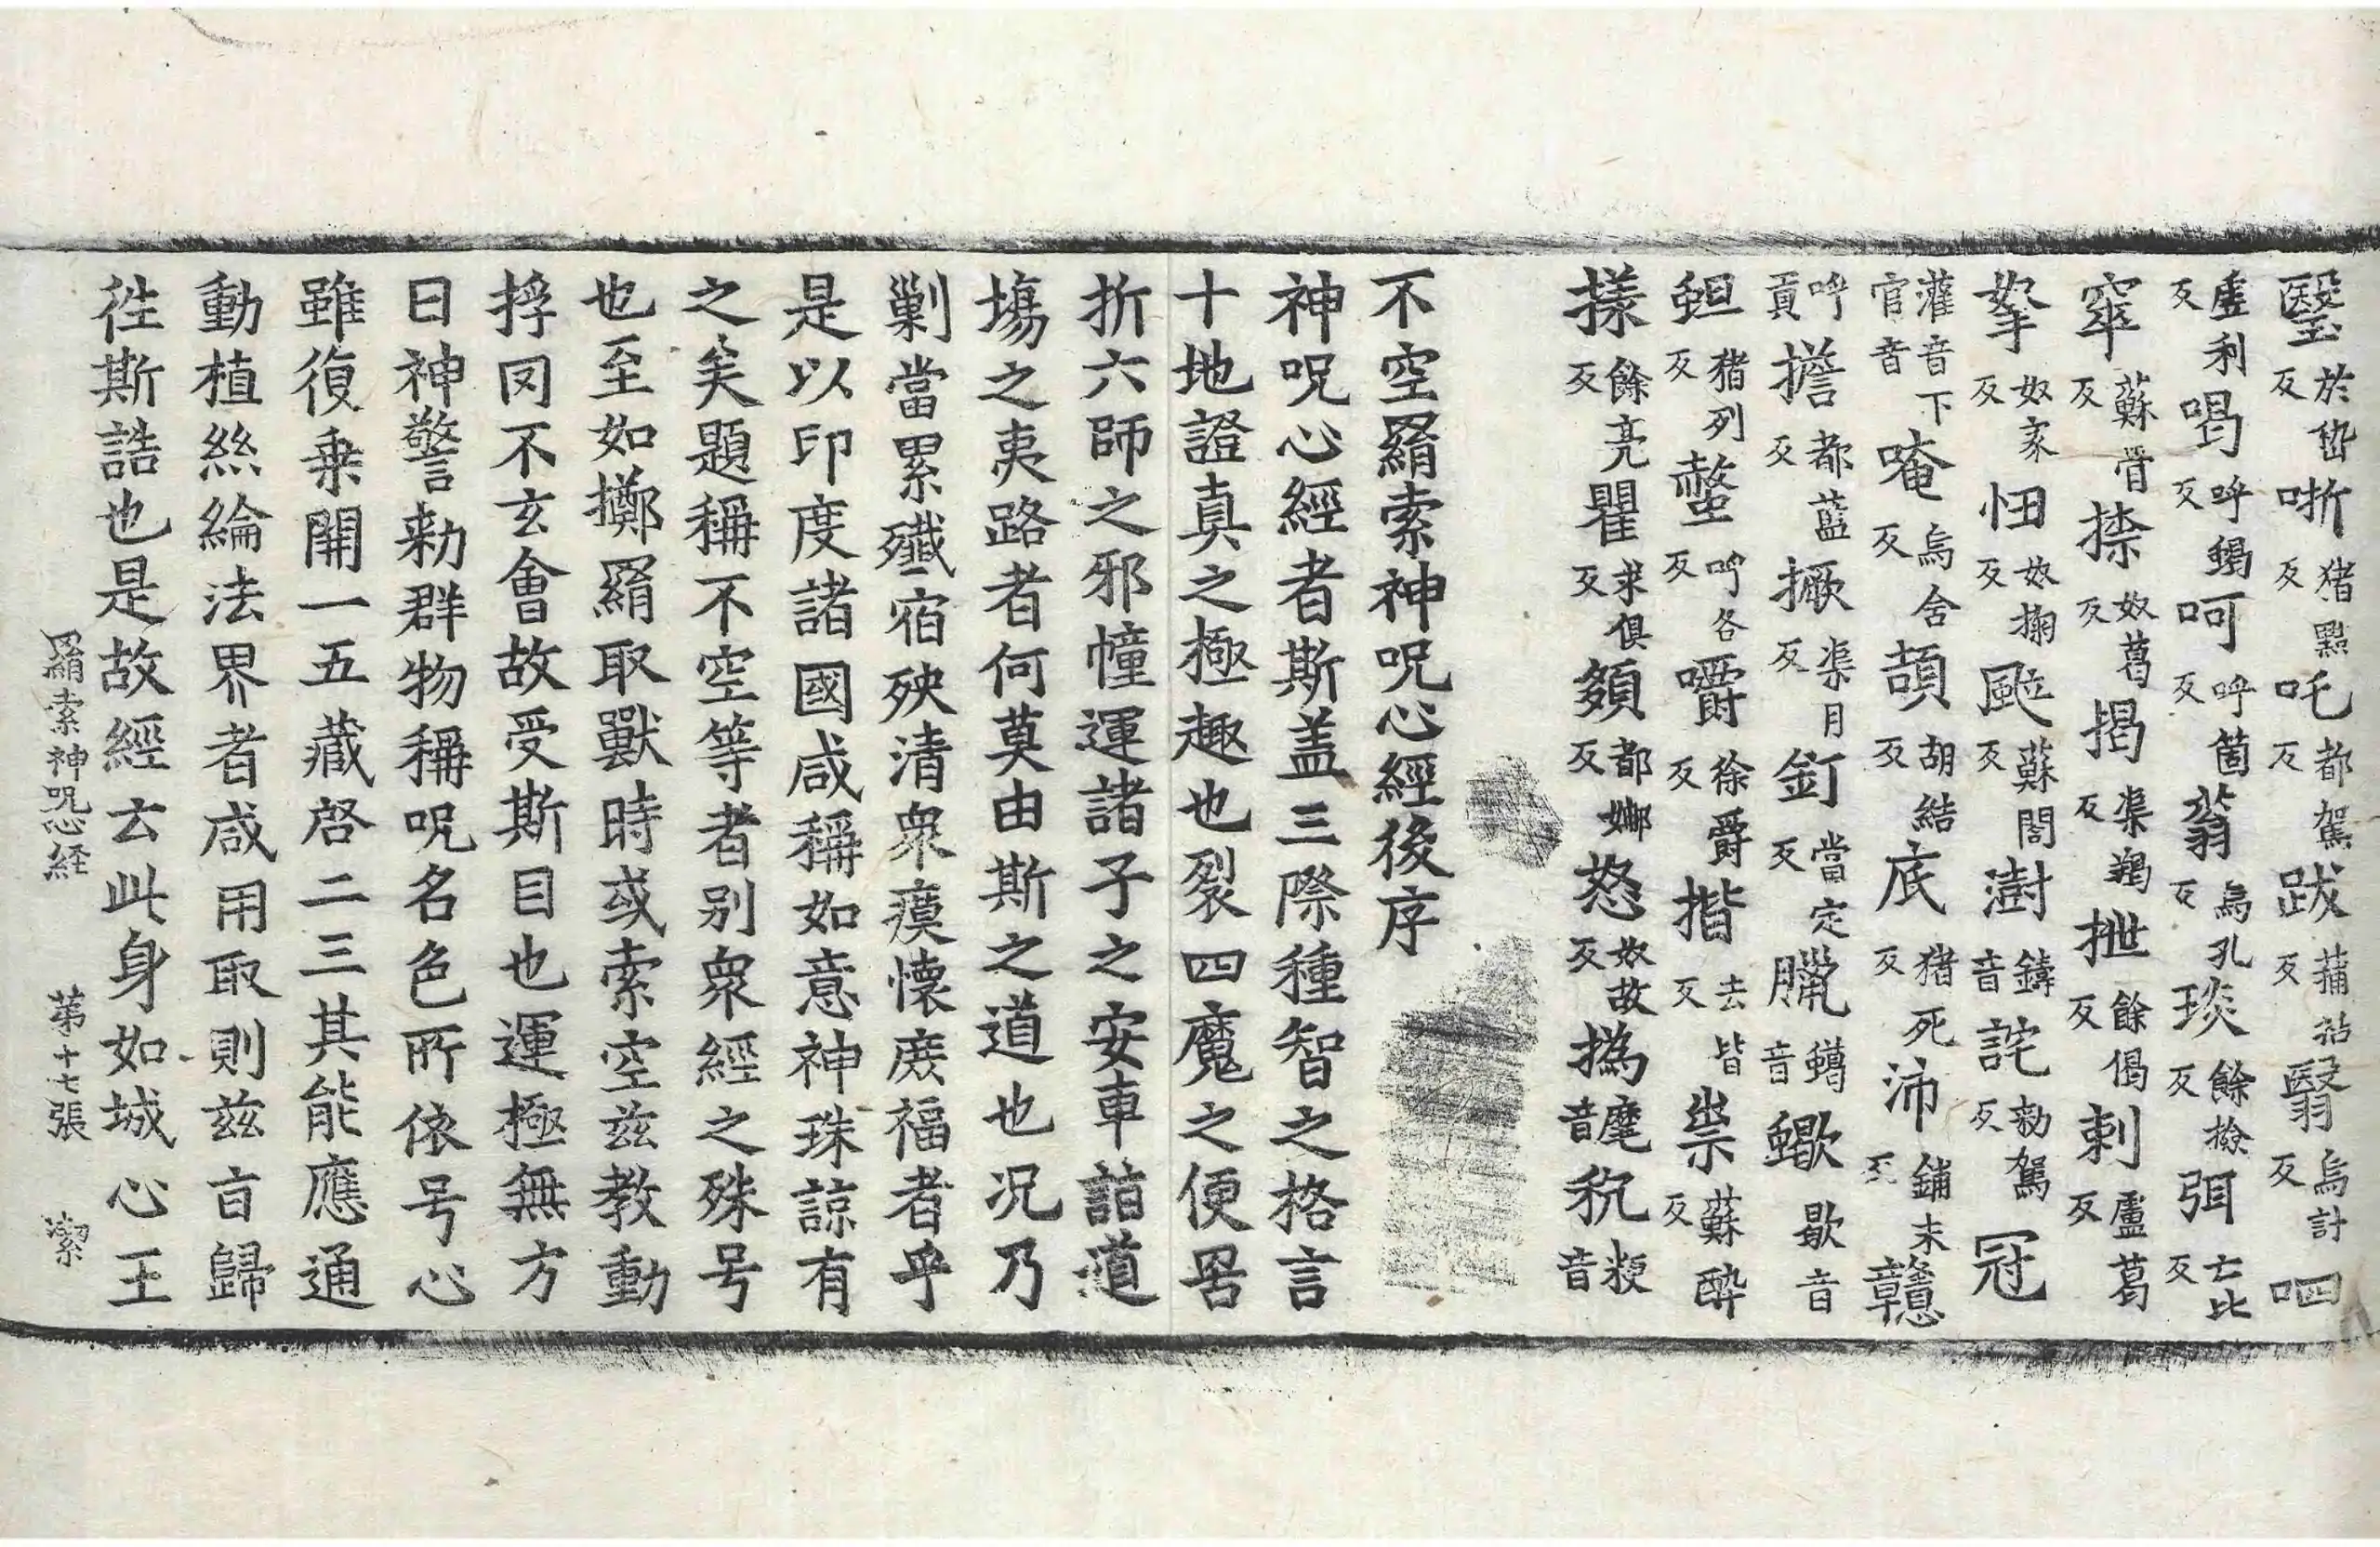 瑿於卧反哳猪黠反吒都駕反跋蒲沾反翳烏計反呬
盧利反喝呼蝎反呵呼箇反蓊烏孔反琰餘撿反弭亡比反
窣蘇骨反捺奴葛反揭渠羯反抴餘偈反剌盧葛反
拏奴家反忸奴掬反颯蘇閤反澍鑄音詫勑駕反冠
灌音下官音唵烏含反頡胡結反底猪死反沛鋪末反戇
呼貢擔都藍反撅渠月反釘當定反臘蠟音蠍歇音
蛆猪列反螫呼各反嚼徐爵反揩去皆反祟蘇醉反
㨾餘亮反瞿求俱反䫂都娜反怒奴故反撝麾音秔粳音
不空羂索神呪心經後序
神呪心經者斯盖三際種智之格言
十地證真之極趣也裂四魔之便罟
折六師之邪幢運諸子之安車詣道
場之夷路者何莫由斯之道也况乃
剿當累殲宿殃清衆瘼懷庶福者乎
是以印度諸國咸稱如意神珠諒有
之矣題稱不空等者别衆經之殊号
也至如擲羂取獸時或索空兹教動
捊罔不玄會故受斯目也運極無方
曰神警勑群物稱呪名色所依号心
雖復乗開一五藏啓二三其能應通
動植絲綸法界者咸用取則兹㫖歸
徃斯誥也是故經云此身如城心王
羂索神呪心経 苐十七張 潔